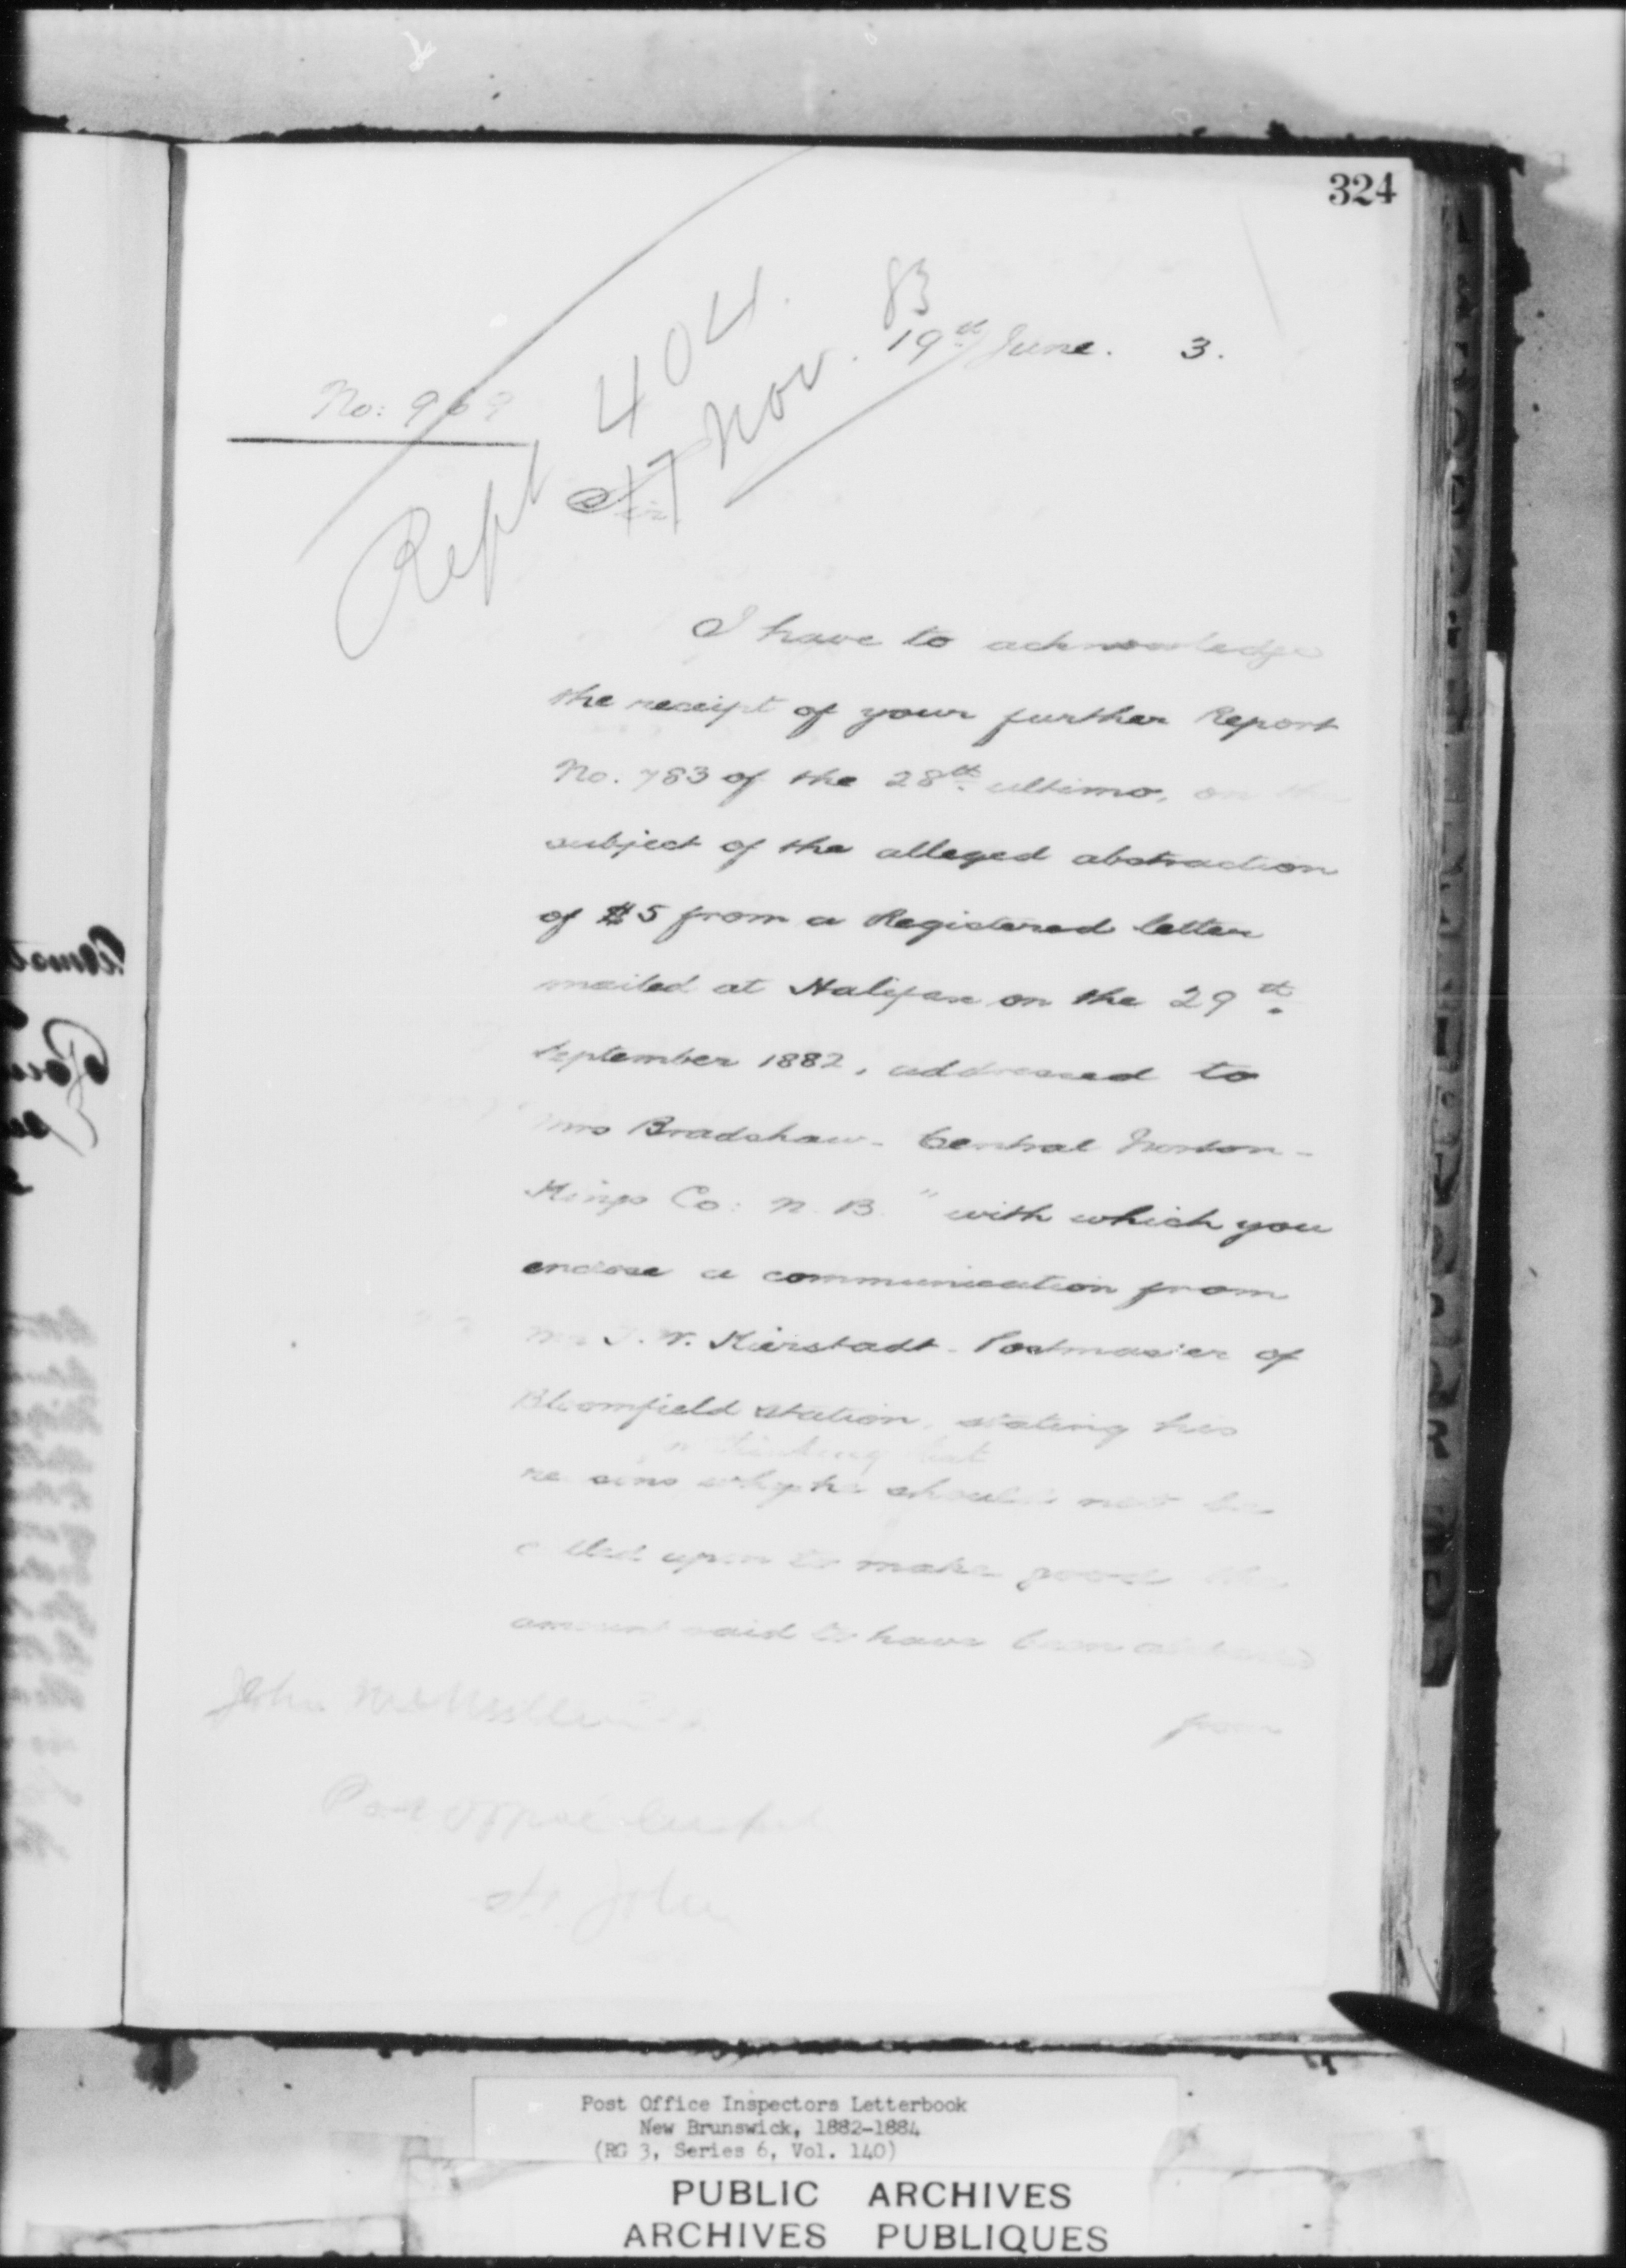 324
83
19th June. 3.
No: 969
Rept 404.
17 Nov.
Sir,
I have to acknowledge
the receipt of your further Report
No. 783 of the 28th ultimo, on the
subject of the alleged abstraction
of $5 from a Registered letter
mailed at Halifax on the 29th
September 1882, addressed to
Mrs Bradshaw - Central Norton -
Kings Co: N. B. " with which you
enclose a communication from
Mr. T. W. Kierstadt - Postmaster of
Bloomfield Station, stating his
thinking that
reasons why he should not be
called upon to make good the
amount said to have been
from
John
Post Office
St. John
Post Office Inspectors Letterbook
New Brunswick, 1882-1884
(RG 3, Series 6, Vol. 140)
PUBLIC ARCHIVES
ARCHIVES PUBLIQUES